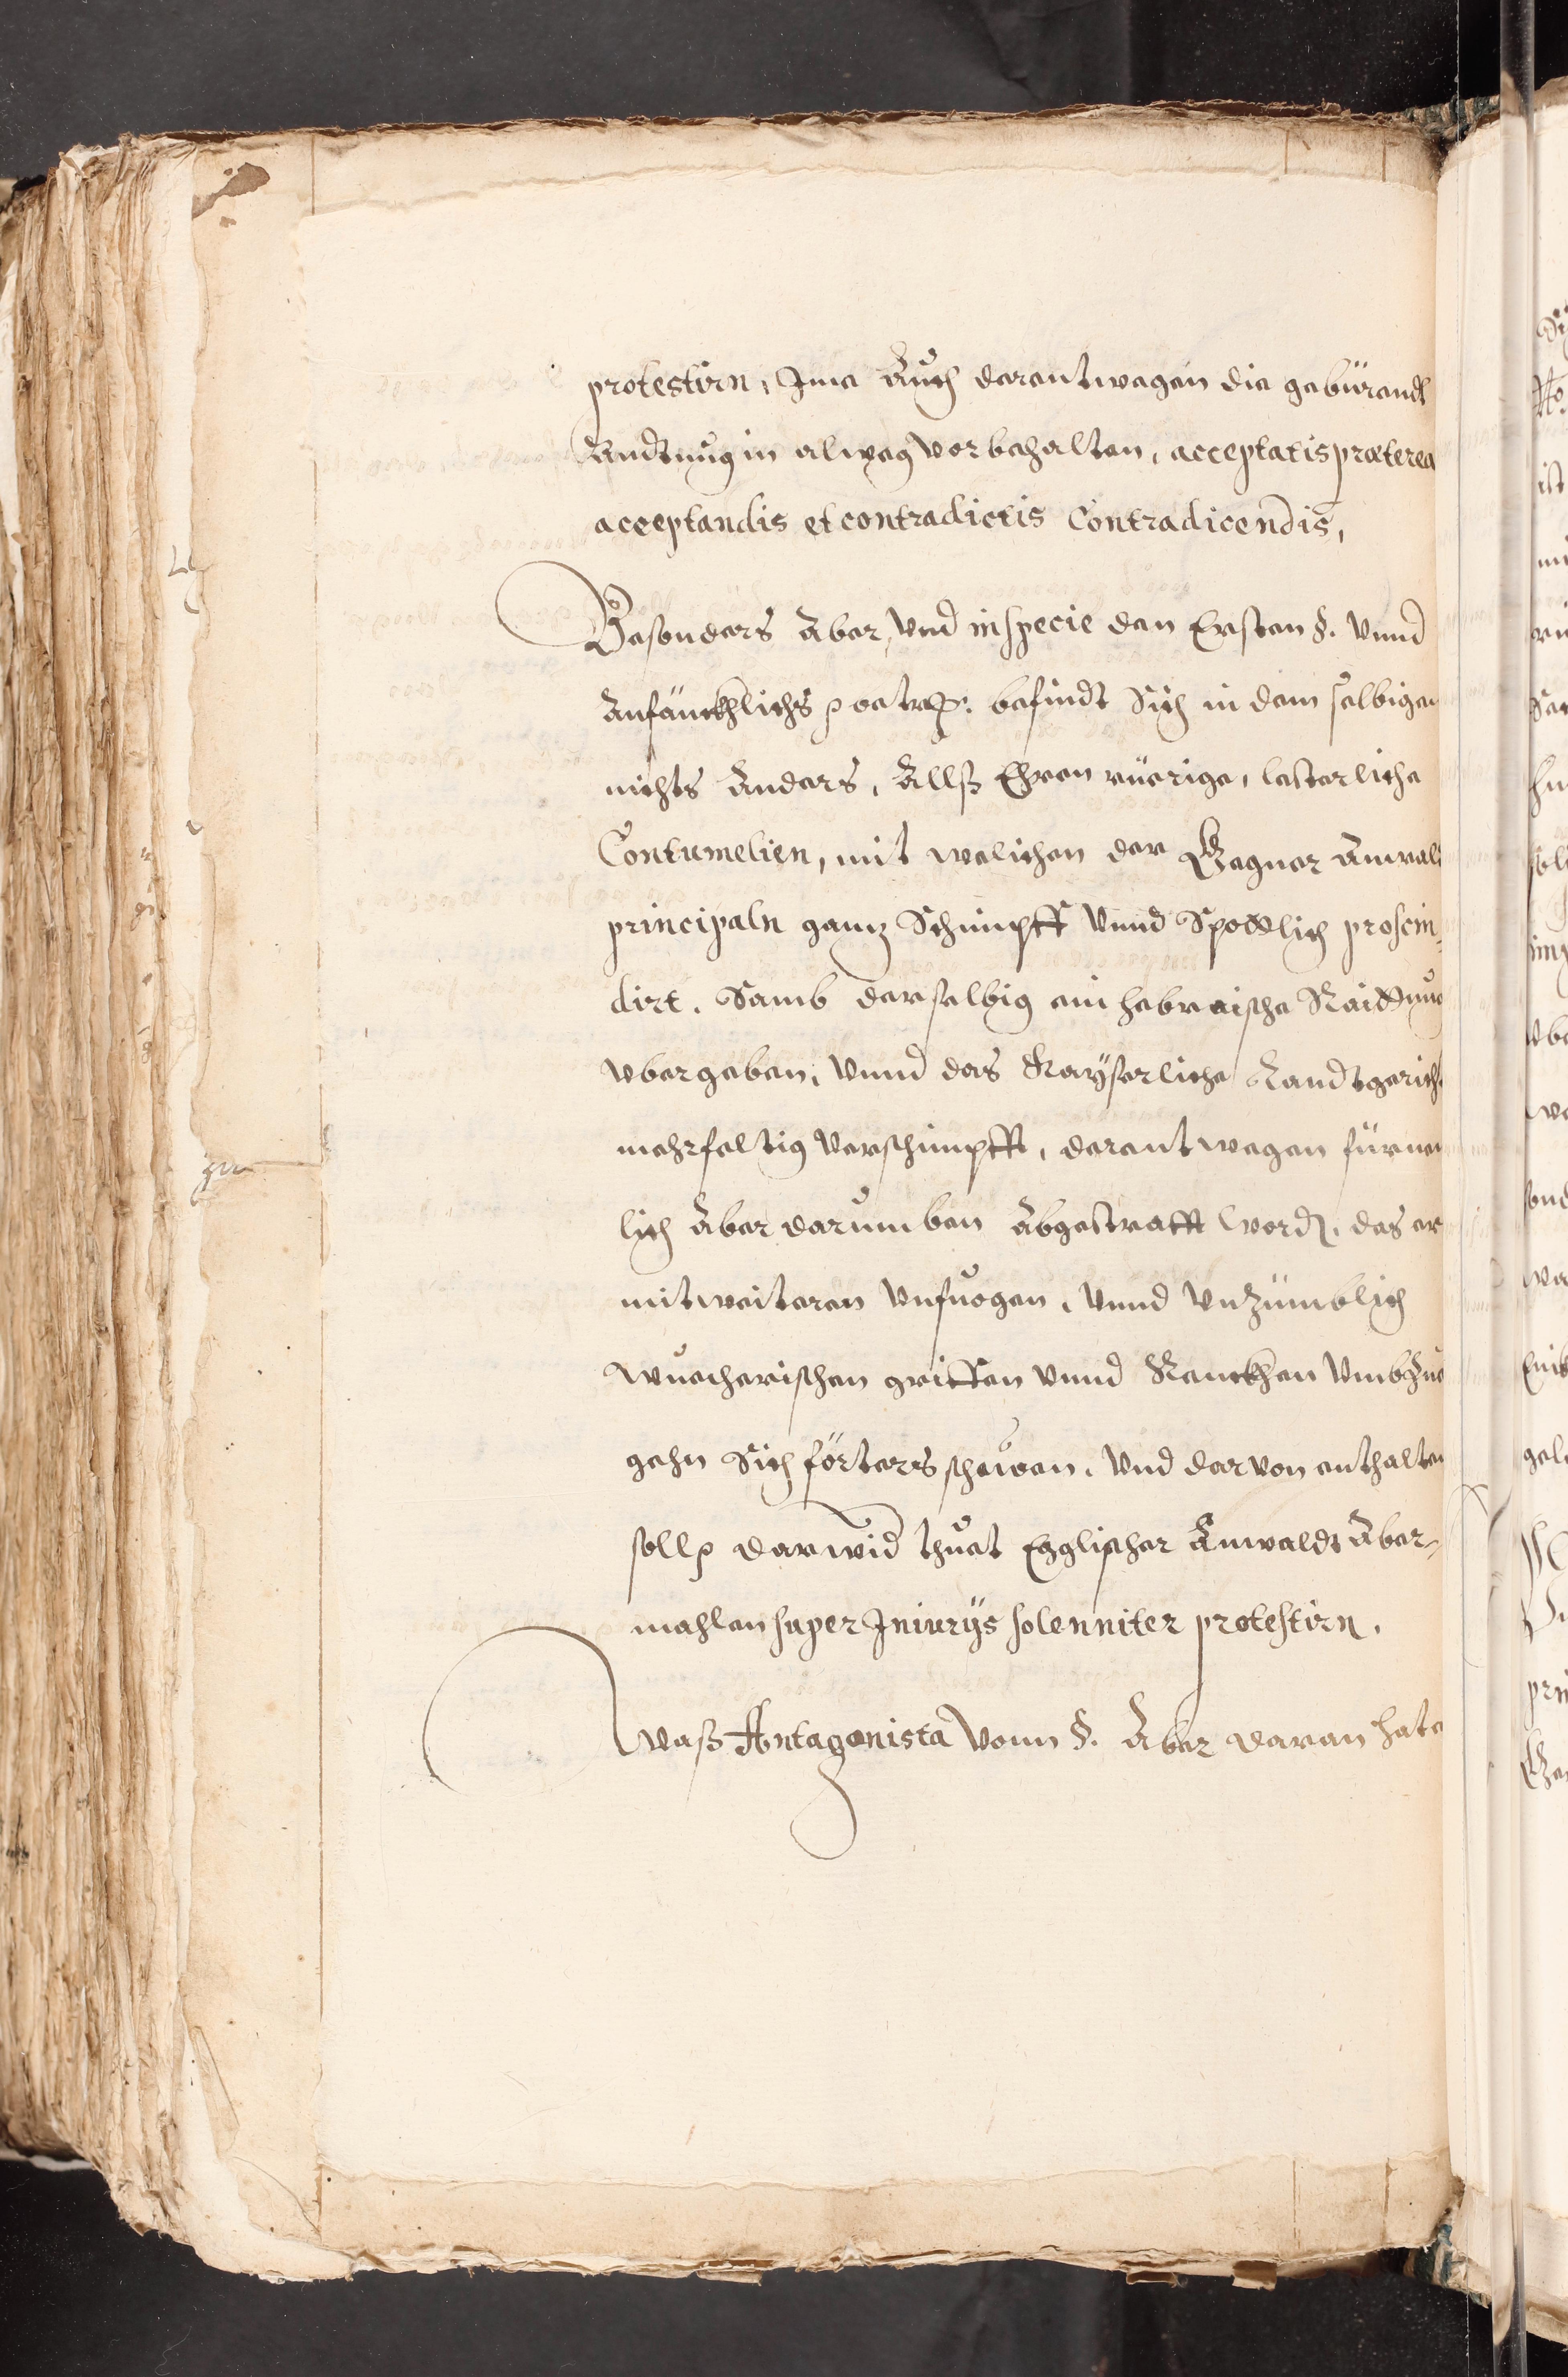 protestirn, Ime Auch derentwegen die gebürendt
Andtnug in alweg vorbehalten, acceptatis præterea
acceptandis et contradictis Contradicendis,
Besonders Aber, Vnd in specie den Ersten §. Vnnd
Anfänckhlichs betreffendt befindt Sich in dem selbigen
nichts Anders, Allß Ehren rüerige, lesterliche
Contumelien, mit welichen der Gegner Anwalt
principaln gantz Schimpff Vnnd Spöttlich proscin-
dirt. Samb derselbig ein hebreische Raittung
Vbergeben, Vnnd das Kayserliche Landtgericht
mehrfeltig Verschimpfft, derentwegen fürnem
lich Aber darumben Abgestrafft worden, das er
mit weiteren Vnfuogen, Vnnd Vnzümblich
Wuecherischen griffen Vnnd Renckhen Vmbzue
gehn Sich förters schewen, Vnd dervon enthalten
soll darwid thuet Egglischer Anwaldt Aber-
mahlen super Iniurijs solenniter protestirn.
Waß Antagonista Vonn §. Aber daran hate